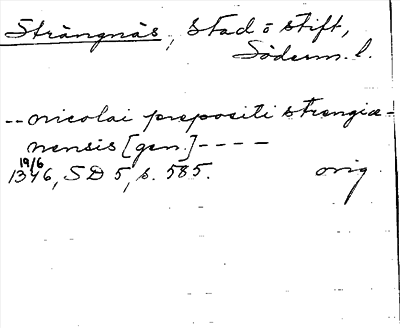 Strängnäs, stad o stift,
Söderm. l.
-- nicolai prepositi strengia-
nensis [gen.] ----
19/6
1346, SD 5, s. 585. orig.